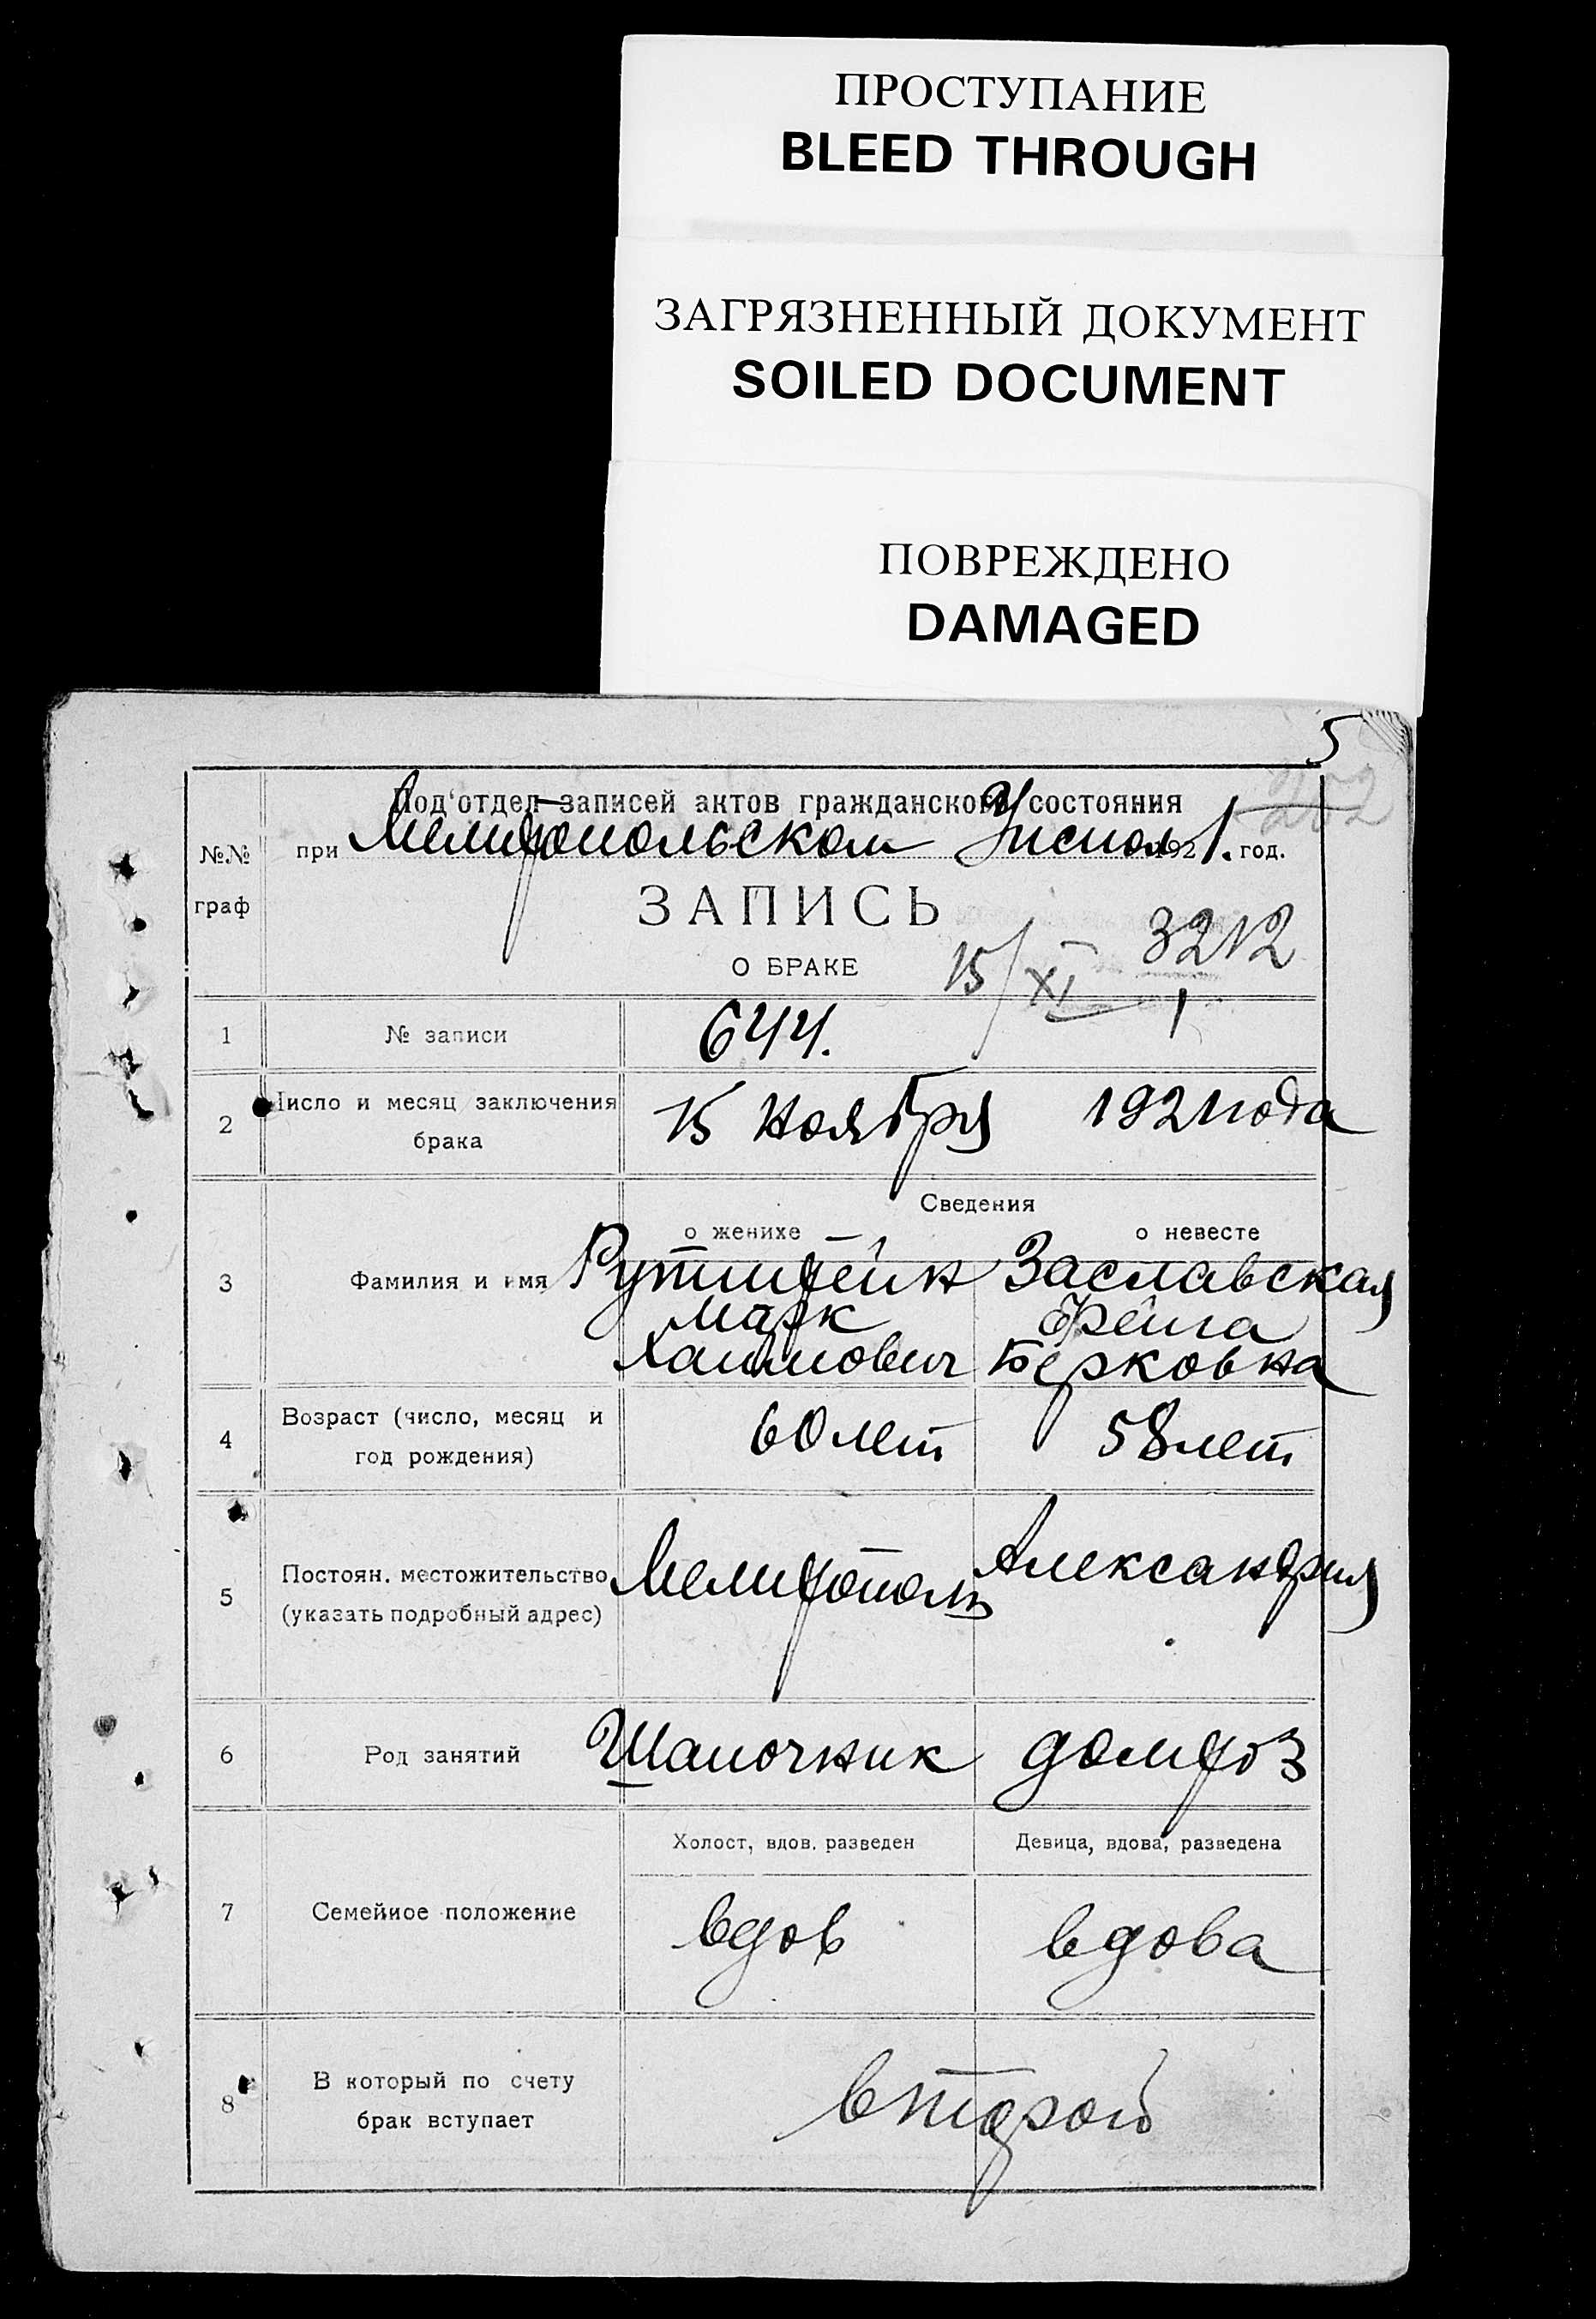 ПРОСТУПАНИЕ
BLEED THROUGH
ЗАГРЯЗНЕННЫЙ ДОКУМЕНТ
SOILED DOCUMENT
ПОВРЕЖДЕНО
DAMAGED
5
Под'отдел записей актов гражданского состояния
при Мелитопольском Уисполк 1921. год.
№№
граф
ЗАПИСЬ
О БРАКЕ
3212
15/XI
1
1 № записи 644.
2 Число и месяц заключения
брака
15 Ноября 1921 года
Сведения
о женихе о невесте
3 Фамилия и имя Рутштейн Заславская
Марк Фейга
Хаимович Берковна
4 Возраст (число, месяц и
год рождения)
60 лет 58 лет
5 Постоян. местожительство
(указать подробный адрес)
Мелитополь Александрия
6 Род занятий Шапочник домхоз
Холост, вдов. разведен Девица, вдова, разведена
7 Семейное положение вдов вдова
8 В который по счету
брак вступает
второй